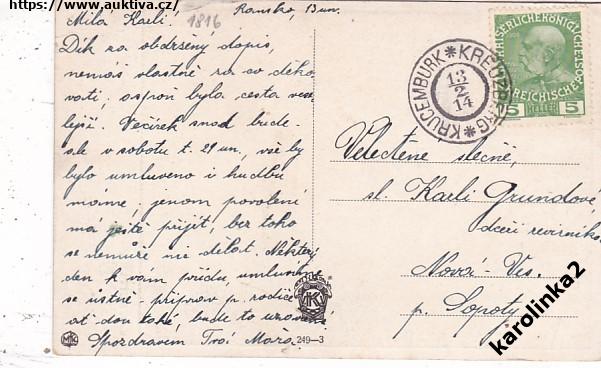 https://www.auktiva.cz/
Ransko, 13 un.
Milá Karli! 1816
Dík za obdržený dopis,
nemáš vlastně za co děko-
vati, aspoň byla cesta vese-
lejší. Večírek snad bude
ale v sobotu t. 21 un, vše by
bylo umluveno i hudbu
máme; jenom povolení
má ještě přijít, bez toho
se nemůže nic dělat. Některý
den k vám přijdu, umluvíme
se ústně. připrav p. rodiče
ať dou také, bude to
S pozdravem Tvá
MK 249—3
KREUZBERG * KRUCEMBURK *
13
2
14
KAISERLICHE KÖNIGLICHE
REICHISCHE
5 HELLER 5
Velectěné slečně,
sl. Karli Grundové,
dceři revírníka
Nová-Ves.
p. Sopoty
karolinka2